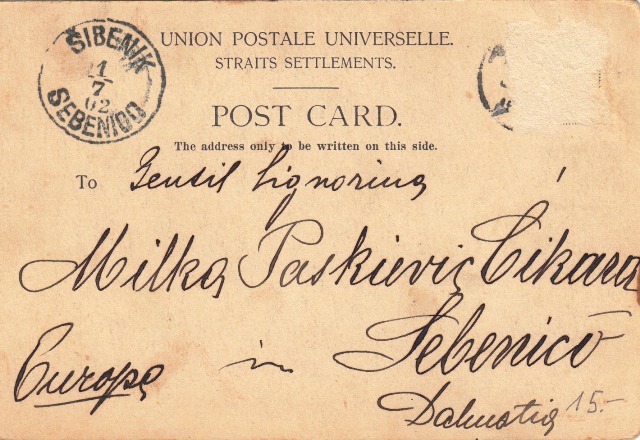 ŠIBENIK
21
7
02
SEBENICO
UNION POSTALE UNIVERSELLE.
STRAITS SETTLEMENTS.
POST CARD.
The address only to be written on this side.
To Gentil Signorina
Milka Paskievic Cikara
in Sebenico
Europa
Dalmatia
15.-